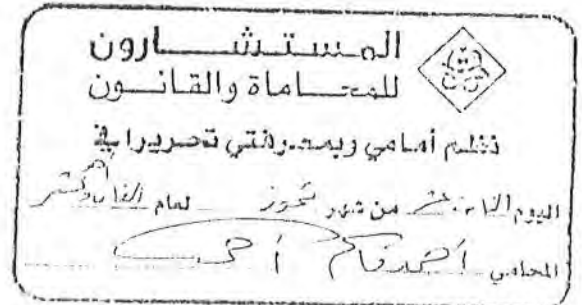 المستشارون
للمحاماة والقانون
نظم أمامي وبمعرفتي تحريرا في
اليوم من شهر تموز لعام
المحامي أحمد